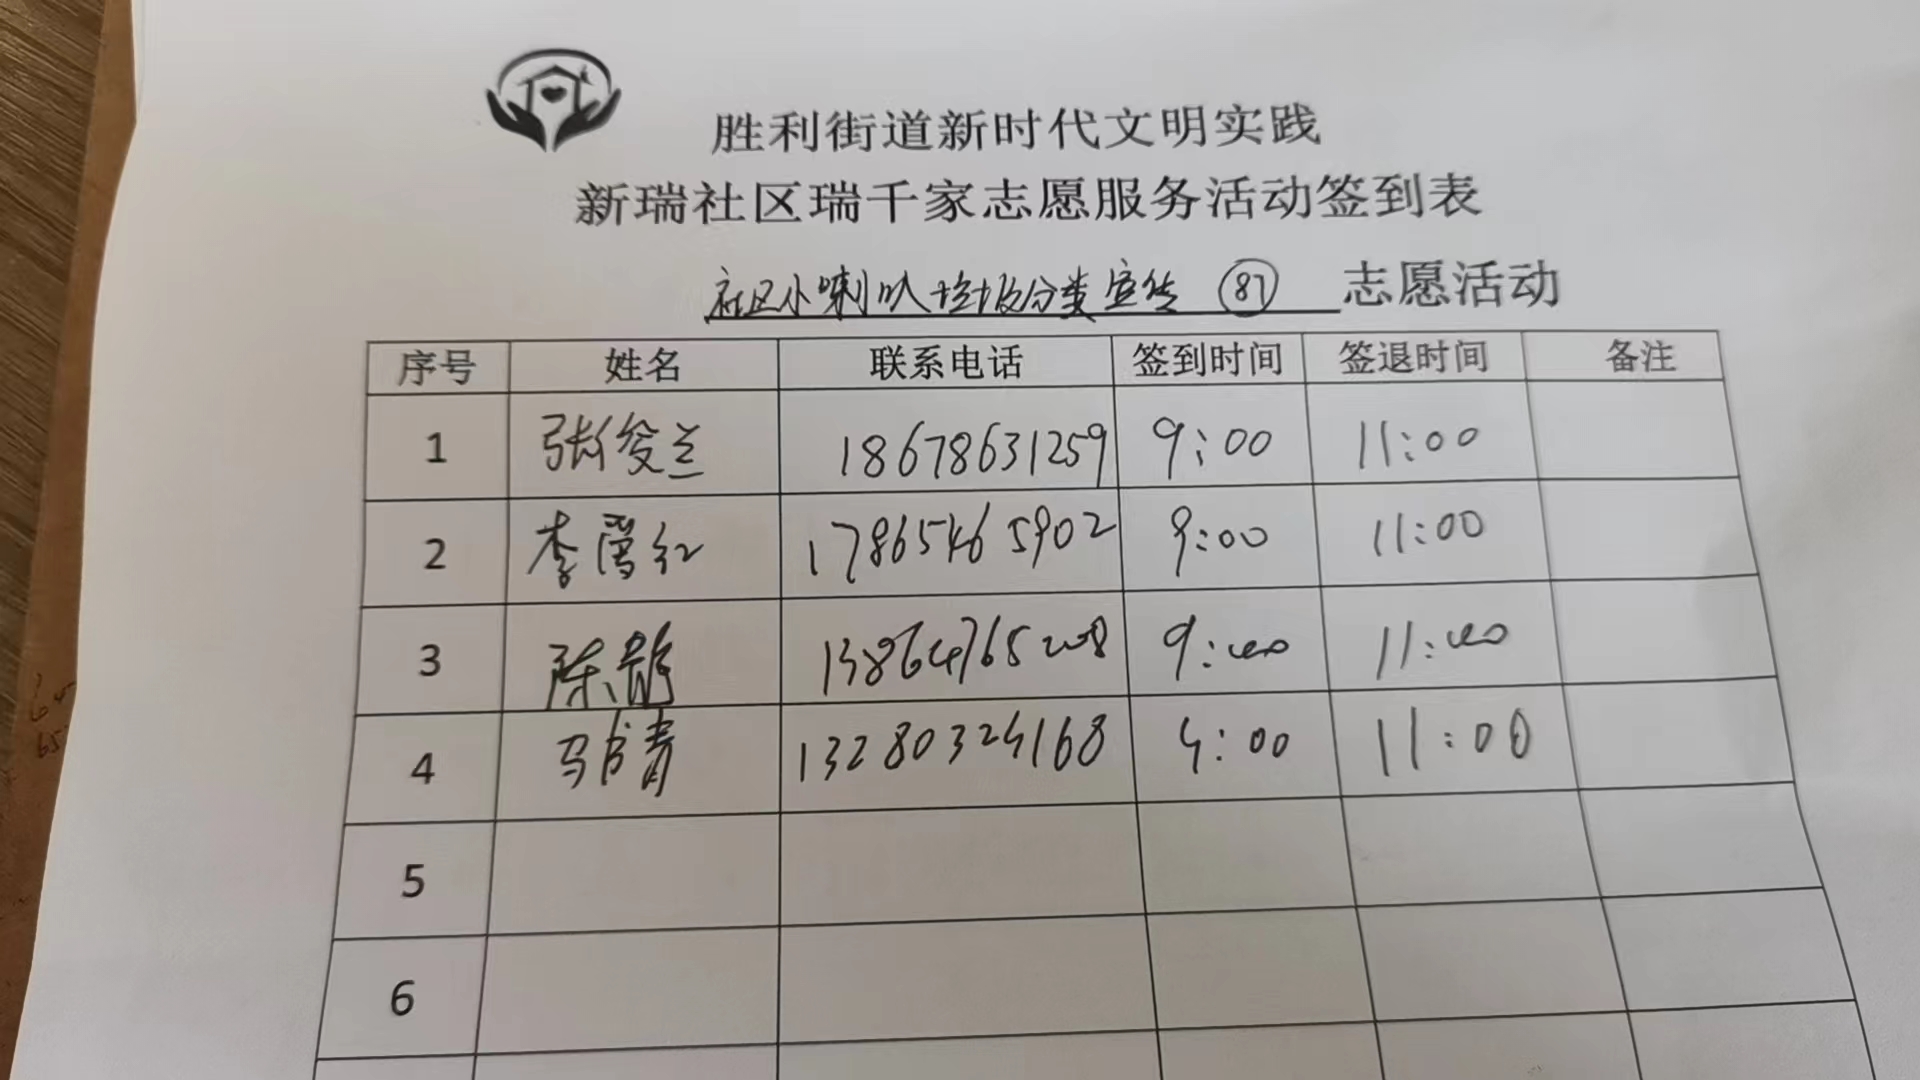 胜利街道新时代文明实践
新瑞社区瑞千家志愿服务活动签到表
社区小喇叭垃圾分类宣传 87 志愿活动
序号 姓名 联系电话 签到时间 签退时间 备注
1 张俊兰 18678631259 9:00 11:00
2 李 红 17865465902 9:00 11:00
3 陈 13864765208 9:00 11:00
4 马 青 13280324168 9:00 11:00
5
6